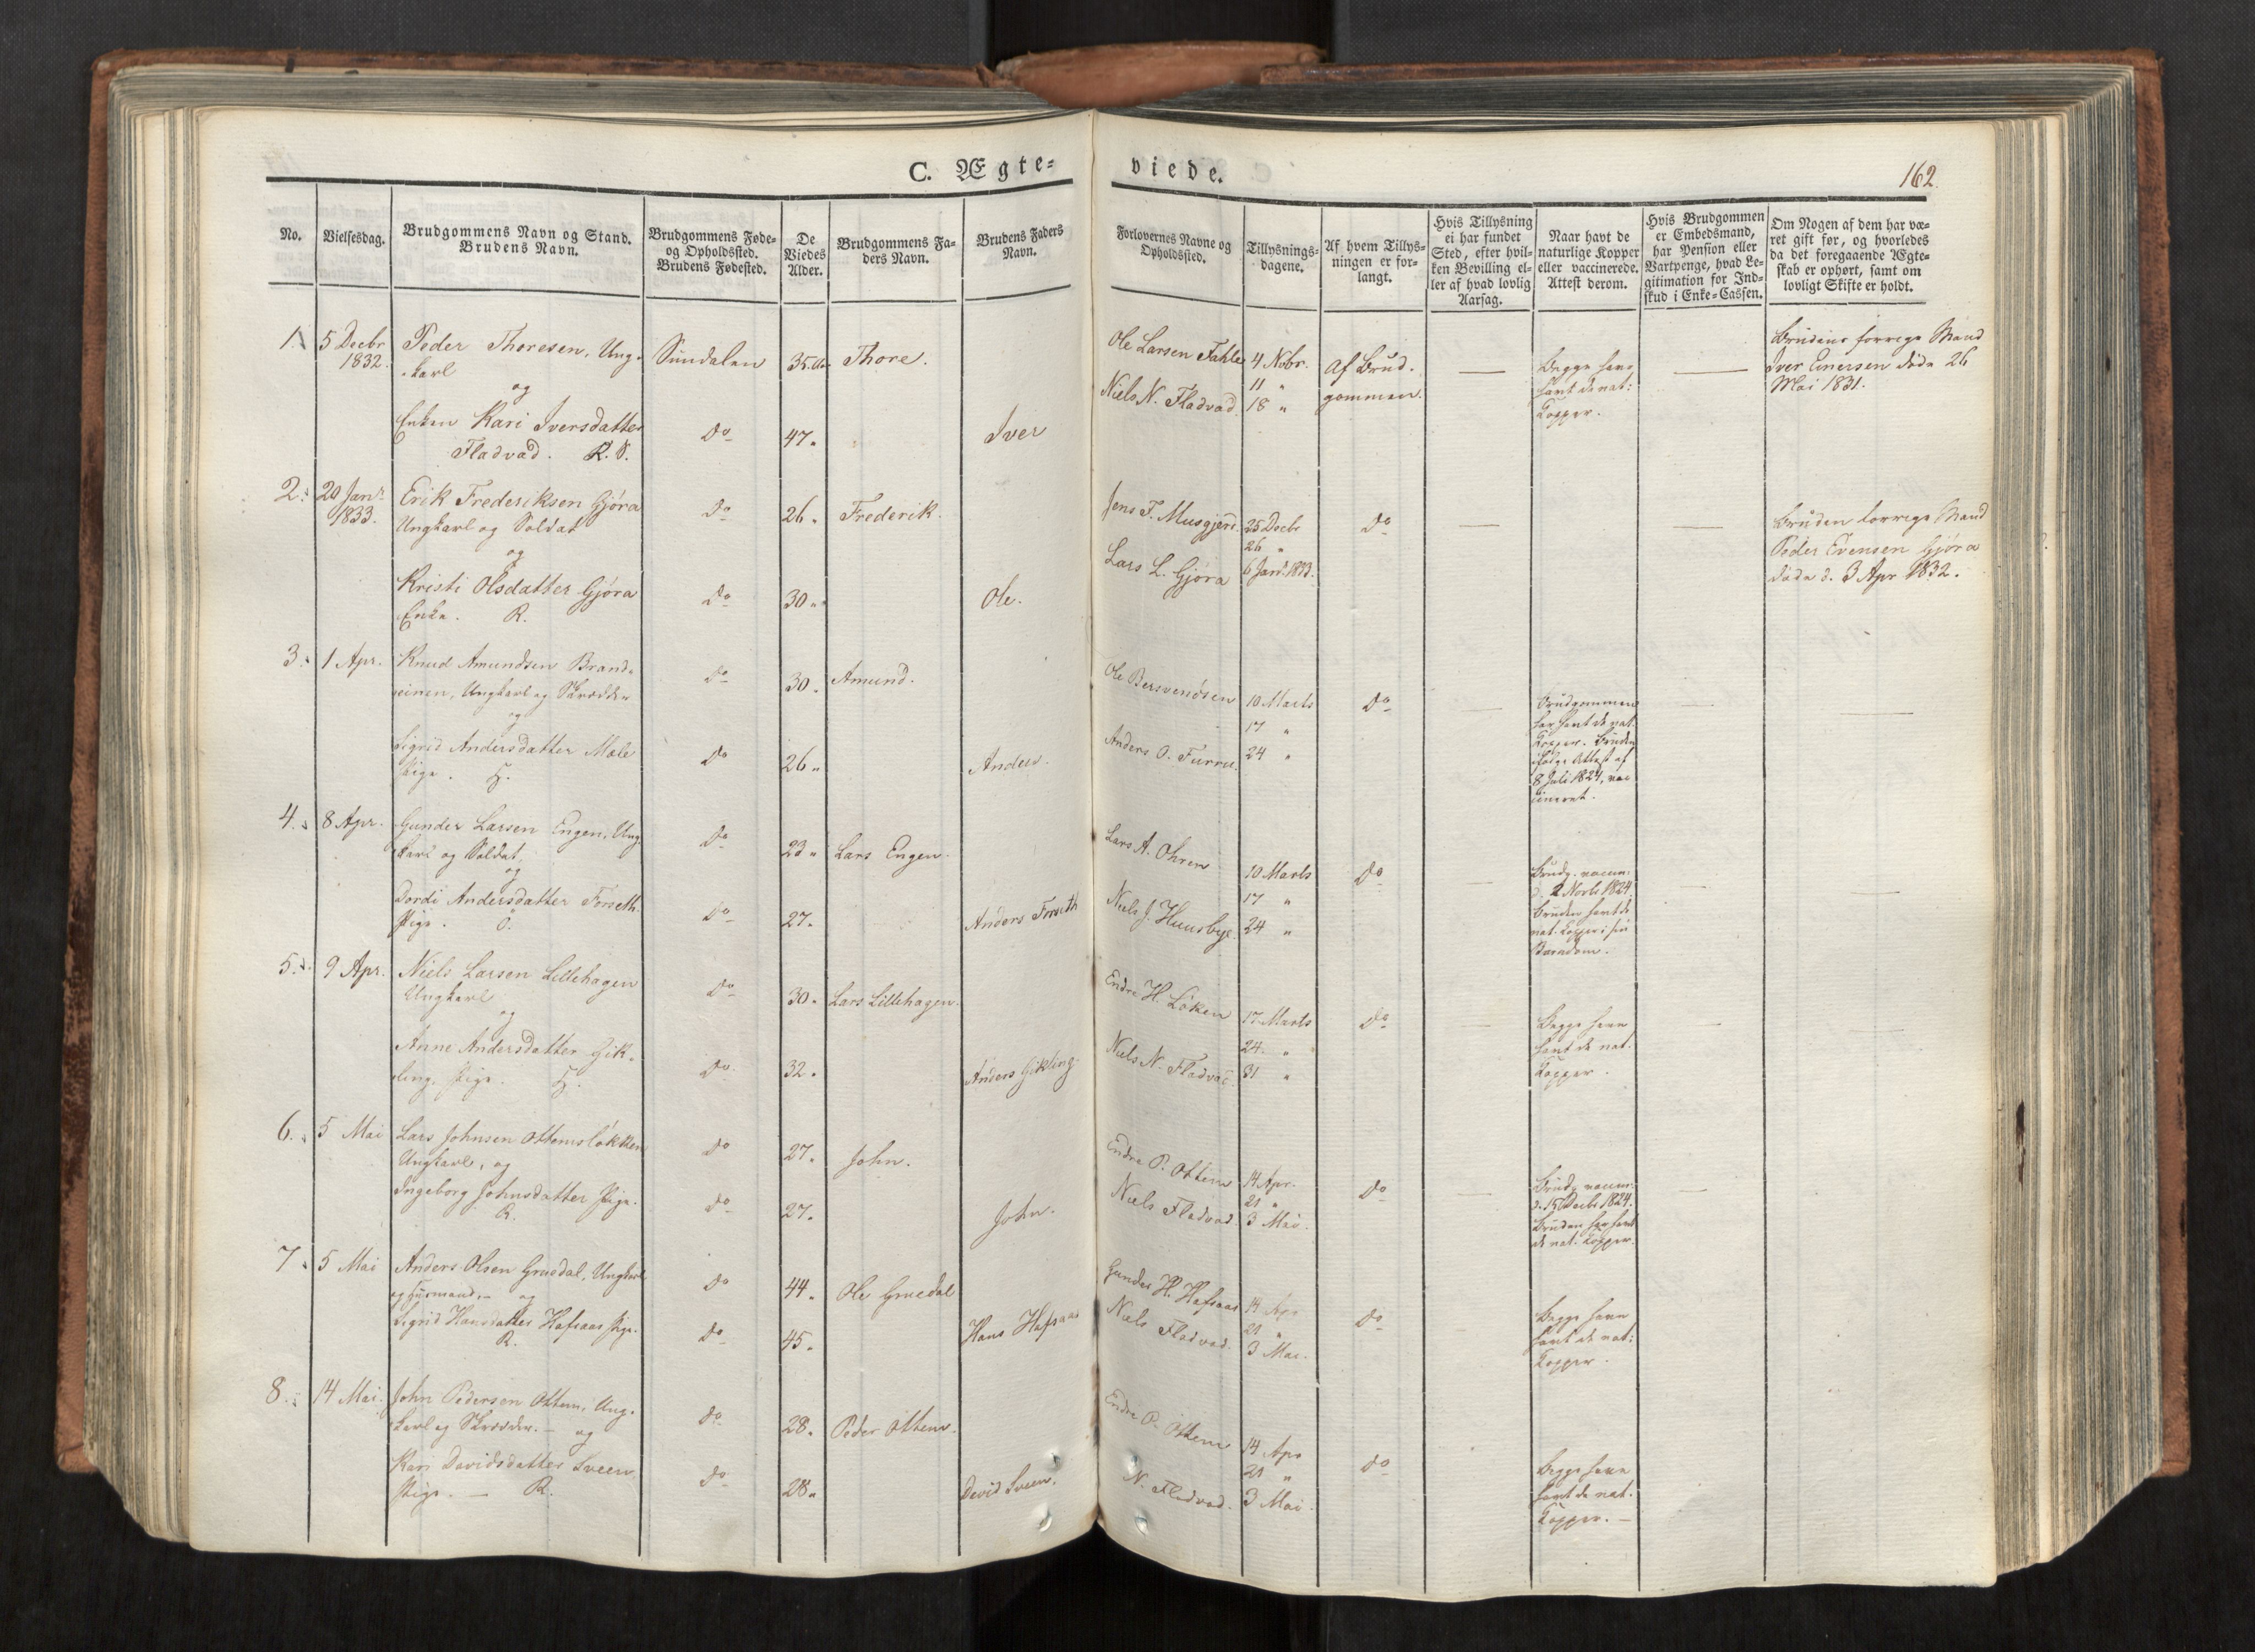 C. Ægte-
viede.
162.
No.
Vielsesdag.
Brudgommens Navn og Stand.
Brudens Navn.
Brudgommens Føde-
og Opholdssted.
Brudens Fødested.
De
Viedes
Alder.
Brudgommens Fa-
ders Navn.
Brudens Faders
Navn.
Forlovernes Navne og
Opholdssted.
Tillysnings-
dagene.
Af hvem Tillys-
ningen er for-
langt.
Hvis Tillysning
ei har fundet
Sted, efter hvil-
ken Bevilling el-
ler af hvad lovlig
Aarsag.
Naar havt de
naturlige Kopper
eller vaccinerede.
Attest derom.
Hvis Brudgommen
er Embedsmand,
har Pension eller
Vartpenge, hvad Le-
gitimation for Ind-
skud i Enke-Cassen.
Om Nogen af dem har væ-
ret gift før, og hvorledes
da det foregaaende Ægte-
skab er ophørt, samt om
lovligt Skifte er holdt.
1. 5 Decbr Peder Thoresen, Ung- Sundalen 35 Thore.
1832. karl
og
Enken Kari Iversdatter Do 47. Iver
Fladvad. R.
Ole Larsen Fahle 4 Nobr. Af Brud-
11 " gommen.
Niels N. Fladvad. 18 "
Begge have
havt de nat:
Kopper.
Brudens forrige Mand
Iver Einersen døde 26
Mai 1831.
2. 29 Janr Erik Frederiksen Gjøra Do 26. Frederik.
1833. Ungkarl og Soldat
og
Kristi Olsdatter Gjøra Do 30. Ole.
Enke. R.
Jens T. Musgjerd. 25 Decbr Do
26 "
Lars L. Gjøra 6 Janr. 1833.
Bruden forrige Mand
Peder Evensen Gjøra
døde d. 3 Apr 1832.
3. 1 Apr. Knud Amundsen Brand- Do 30. Amund.
einen, Ungkarl og Skrædder
og
Sigrid Andersdatter Mæle Do 26. Anders.
Pige. H.
Ole Bersvendsen 10 Marts Do
17 "
Anders O. Furru. 24 "
Brudgommen
har havt de nat.
Kopper. Bruden
ifølge Attest af
8 Juli 1824, vac
cineret.
4. 8 Apr. Gunder Larsen Engen, Ung- Do 23. Lars Engen.
karl og Soldat,
og
Dordi Andersdatter Forseth. Do 27. Anders Forseth
Pige. Ö.
Lars A. Ohren 10 Marts Do
17 "
Niels J. Huusbye. 24 "
Brudg. vaccin.
d. 2 1824
Bruden havt de
nat. Kopper i sin
Barndom.
5. 9 Apr. Niels Larsen Lillehagen Do 30. Lars Lillehagen.
Ungkarl
og
Anne Andersdatter Gik- Do 32. Anders Gikling
ling, Pige. H.
Endre H. Løken 17 Marts Do
24 "
Niels N. Fladvad 31 "
Begge have
havt de nat.
Kopper.
6. 5 Mai Lars Johnsen Ottemsløkken Do 27. John.
Ungkarl, og
Ingeborg Johnsdatter Pige. Do 27. John.
R.
Endre P. Ottem 14 Apr. Do
21 "
Niels Fladvad. 3 Mai.
Brudg. vaccin.
d. 15 Decbr 1824.
Bruden har havt
de nat. Kopper.
7. 5 Mai Anders Olsen Gruedal, Ungkarl Do 44. Ole Gruedal
og Huusmand, og
Sigrid Hansdatter Hafsaas Pige. Do 45. Hans Hafsaas
R.
Gunder H. Hafsaas 14 Apr Do
21 "
Niels Fladvad. 3 Mai.
Begge have
havt de nat:
Kopper.
8. 14 Mai. John Pedersen Ottem, Ung- Do 28. Peder Ottem.
karl og Skrædder. og
Kari Davidsdatter Sveen Do 28. David Sveen.
Pige. R.
Endre P. Ottem 14 Apr Do
21 "
N. Fladvad. 3 Mai.
Begge have
havt de nat.
Kopper.